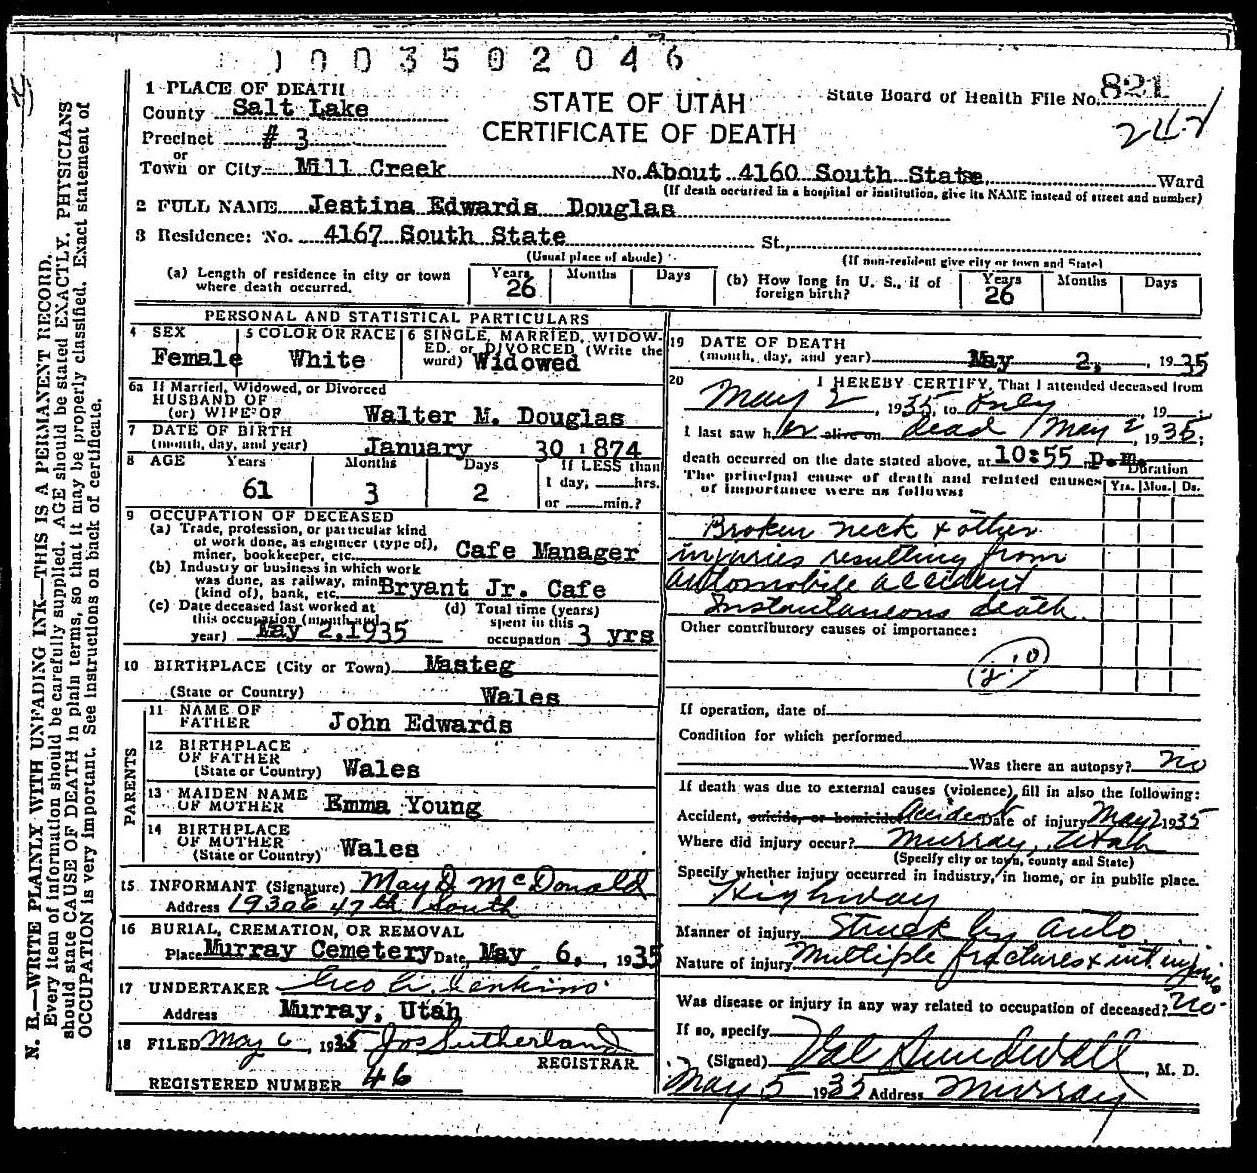 1003502046
1 PLACE OF DEATH
County Salt Lake
Precinct # 3
or
Town or City Mill Creek
STATE OF UTAH
CERTIFICATE OF DEATH
State Board of Health File No. 821
No. About 4160 South State, Ward
(If death occurred in a hospital or institution, give its NAME instead of street and number)
2 FULL NAME Jestina Edwards Douglas
3 Residence: No. 4167 South State St.,
(Usual place of abode) (If non-resident give city or town and State)
(a) Length of residence in city or town where death occurred. Years 26 Months Days
(b) How long in U. S., if of foreign birth? Years 26 Months Days
PERSONAL AND STATISTICAL PARTICULARS
4 SEX Female
5 COLOR OR RACE White
6 SINGLE, MARRIED, WIDOWED, or DIVORCED (Write the word) Widowed
6a If Married, Widowed, or Divorced
HUSBAND OF
(or) WIFE OF Walter M. Douglas
7 DATE OF BIRTH
(month, day, and year) January 30 1874
8 AGE Years 61 Months 3 Days 2
If LESS than
1 day, hrs.
or min.?
9 OCCUPATION OF DECEASED
(a) Trade, profession, or particular kind
of work done, as engineer (type of),
miner, bookkeeper, etc. Cafe Manager
(b) Industry or business in which work
was done, as railway, mine
(kind of), bank, etc. Bryant Jr. Cafe
(c) Date deceased last worked at
this occupation (month and
year) May 2, 1935
(d) Total time (years)
spent in this
occupation 3 yrs
10 BIRTHPLACE (City or Town) Masteg
(State or Country) Wales
PARENTS
11 NAME OF
FATHER John Edwards
12 BIRTHPLACE
OF FATHER
(State or Country) Wales
13 MAIDEN NAME
OF MOTHER Emma Young
14 BIRTHPLACE
OF MOTHER
(State or Country) Wales
15 INFORMANT (Signature) May D McDonald
Address 1930 E 47th South
16 BURIAL, CREMATION, OR REMOVAL
Place Murray Cemetery Date May 6, 1935
17 UNDERTAKER Geo C. Jenkins
Address Murray, Utah
18 FILED May 6, 1935 Jos Sutherland
REGISTRAR
REGISTERED NUMBER 46
19 DATE OF DEATH
(month, day, and year) May 2, 1935
20 I HEREBY CERTIFY, That I attended deceased from
May 2, 1935, to only, 19
I last saw her alive on dead May 2, 1935;
death occurred on the date stated above, at 10:55 p.m.
The principal cause of death and related causes
of importance were as follows:
Duration
Yrs. Mos. Ds.
Broken neck & other
injuries resulting from
automobile accident
Instantaneous death.
Other contributory causes of importance:
If operation, date of
Condition for which performed
Was there an autopsy? no
If death was due to external causes (violence), fill in also the following:
Accident, suicide, or homicide Accident Date of injury May 2 1935
Where did injury occur? Murray, Utah
(Specify city or town, county and State)
Specify whether injury occurred in industry, in home, or in public place.
Highway
Manner of injury Struck by auto
Nature of injury Multiple fractures & int. injuries
Was disease or injury in any way related to occupation of deceased? no
If so, specify
(Signed) Val Sundwall, M. D.
May 5 1935 Address Murray
N. B.—WRITE PLAINLY WITH UNFADING INK—THIS IS A PERMANENT RECORD.
Every item of information should be carefully supplied. AGE should be stated EXACTLY. PHYSICIANS
should state CAUSE OF DEATH in plain terms, so that it may be properly classified. Exact statement of
OCCUPATION is very important. See instructions on back of certificate.